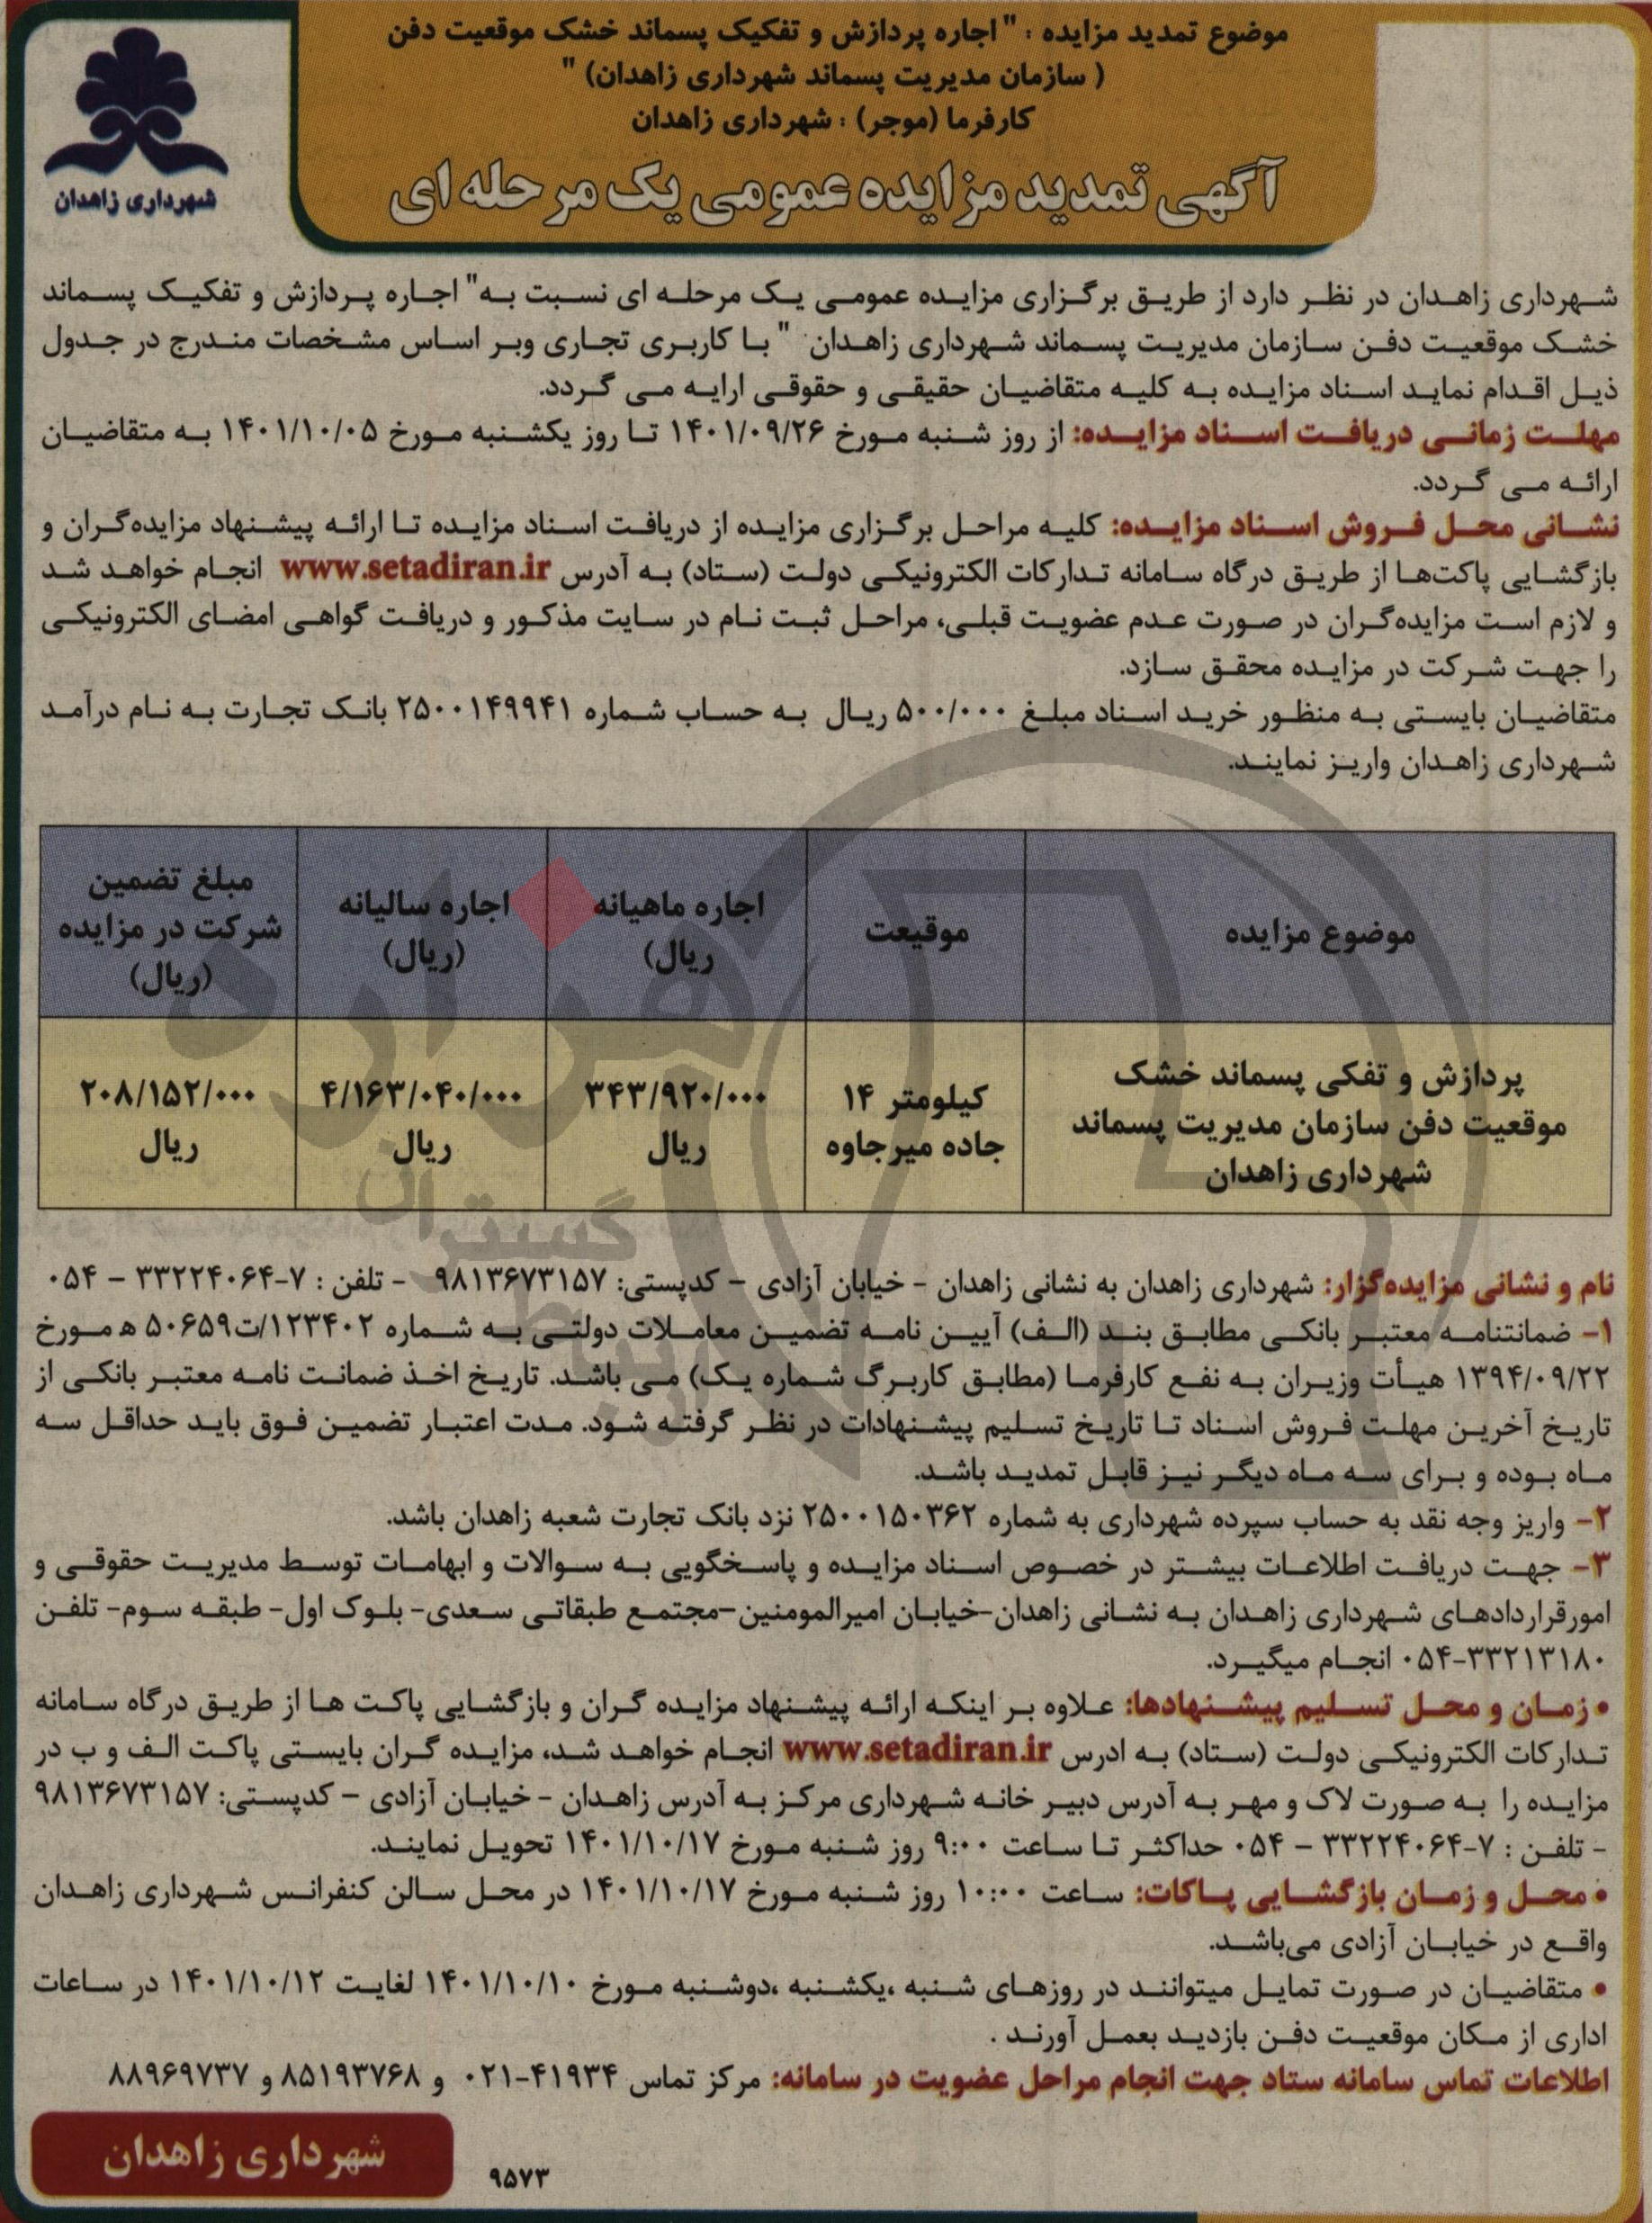 موضوع تمدید مزایده : " اجاره پردازش و تفکیک پسماند خشک موقعیت دفن
( سازمان مدیریت پسماند شهرداری زاهدان) "
کارفرما (موجر) : شهرداری زاهدان
آگهی تمدید مزایده عمومی یک مرحله ای
شهرداری زاهدان
شهرداری زاهدان در نظر دارد از طریق برگزاری مزایده عمومی یک مرحله ای نسبت به" اجاره پردازش و تفکیک پسماند
خشک موقعیت دفن سازمان مدیریت پسماند شهرداری زاهدان " با کاربری تجاری وبر اساس مشخصات مندرج در جدول
ذیل اقدام نماید اسناد مزایده به کلیه متقاضیان حقیقی و حقوقی ارایه می گردد.
مهلت زمانی دریافت اسناد مزایده: از روز شنبه مورخ ۱۴۰۱/۰۹/۲۶ تا روز یکشنبه مورخ ۱۴۰۱/۱۰/۰۵ به متقاضیان
ارائه می گردد.
نشانی محل فروش اسناد مزایده: کلیه مراحل برگزاری مزایده از دریافت اسناد مزایده تا ارائه پیشنهاد مزایده‌گران و
بازگشایی پاکت‌ها از طریق درگاه سامانه تدارکات الکترونیکی دولت (ستاد) به آدرس www.setadiran.ir انجام خواهد شد
و لازم است مزایده‌گران در صورت عدم عضویت قبلی، مراحل ثبت نام در سایت مذکور و دریافت گواهی امضای الکترونیکی
را جهت شرکت در مزایده محقق سازد.
متقاضیان بایستی به منظور خرید اسناد مبلغ ۵۰۰/۰۰۰ ریال به حساب شماره ۲۵۰۰۱۴۹۹۴۱ بانک تجارت به نام درآمد
شهرداری زاهدان واریز نمایند.
موضوع مزایده
موقیعت
اجاره ماهیانه
ریال)
اجاره سالیانه
(ریال)
مبلغ تضمین
شرکت در مزایده
(ریال)
پردازش و تفکی پسماند خشک
موقعیت دفن سازمان مدیریت پسماند
شهرداری زاهدان
کیلومتر ۱۴
جاده میرجاوه
۳۴۳/۹۲۰/۰۰۰
ریال
۴/۱۶۳/۰۴۰/۰۰۰
ریال
۲۰۸/۱۵۲/۰۰۰
ریال
نام و نشانی مزایده‌گزار: شهرداری زاهدان به نشانی زاهدان - خیابان آزادی – کدپستی: ۹۸۱۳۶۷۳۱۵۷ - تلفن : ۷-۳۳۲۲۴۰۶۴ – ۰۵۴
۱- ضمانتنامه معتبر بانکی مطابق بند (الف) آیین نامه تضمین معاملات دولتی به شماره ۱۲۳۴۰۲/ت۵۰۶۵۹ ه مورخ
۱۳۹۴/۰۹/۲۲ هیأت وزیران به نفع کارفرما (مطابق کاربرگ شماره یک) می باشد. تاریخ اخذ ضمانت نامه معتبر بانکی از
تاریخ آخرین مهلت فروش اسناد تا تاریخ تسلیم پیشنهادات در نظر گرفته شود. مدت اعتبار تضمین فوق باید حداقل سه
ماه بوده و برای سه ماه دیگر نیز قابل تمدید باشد.
۲- واریز وجه نقد به حساب سپرده شهرداری به شماره ۲۵۰۰۱۵۰۳۶۲ نزد بانک تجارت شعبه زاهدان باشد.
۳- جهت دریافت اطلاعات بیشتر در خصوص اسناد مزایده و پاسخگویی به سوالات و ابهامات توسط مدیریت حقوقی و
امورقراردادهای شهرداری زاهدان به نشانی زاهدان-خیابان امیرالمومنین-مجتمع طبقاتی سعدی- بلوک اول- طبقه سوم- تلفن
۰۵۴-۳۳۲۱۳۱۸۰ انجام میگیرد.
• زمان و محل تسلیم پیشنهادها: علاوه بر اینکه ارائه پیشنهاد مزایده گران و بازگشایی پاکت ها از طریق درگاه سامانه
تدارکات الکترونیکی دولت (ستاد) به ادرس www.setadiran.ir انجام خواهد شد، مزایده گران بایستی پاکت الف و ب در
مزایده را به صورت لاک و مهر به آدرس دبیر خانه شهرداری مرکز به آدرس زاهدان - خیابان آزادی – کدپستی: ۹۸۱۳۶۷۳۱۵۷
- تلفن : ۷-۳۳۲۲۴۰۶۴ – ۰۵۴ حداکثر تا ساعت ۹:۰۰ روز شنبه مورخ ۱۴۰۱/۱۰/۱۷ تحویل نمایند.
• محل و زمان بازگشایی پاکات: ساعت ۱۰:۰۰ روز شنبه مورخ ۱۴۰۱/۱۰/۱۷ در محل سالن کنفرانس شهرداری زاهدان
واقع در خیابان آزادی می‌باشد.
• متقاضیان در صورت تمایل میتوانند در روزهای شنبه ،یکشنبه ،دوشنبه مورخ ۱۴۰۱/۱۰/۱۰ لغایت ۱۴۰۱/۱۰/۱۲ در ساعات
اداری از مکان موقعیت دفن بازدید بعمل آورند .
اطلاعات تماس سامانه ستاد جهت انجام مراحل عضویت در سامانه: مرکز تماس ۴۱۹۳۴-۰۲۱ و ۸۵۱۹۳۷۶۸ و ۸۸۹۶۹۷۳۷
۹۵۷۳
شهرداری زاهدان